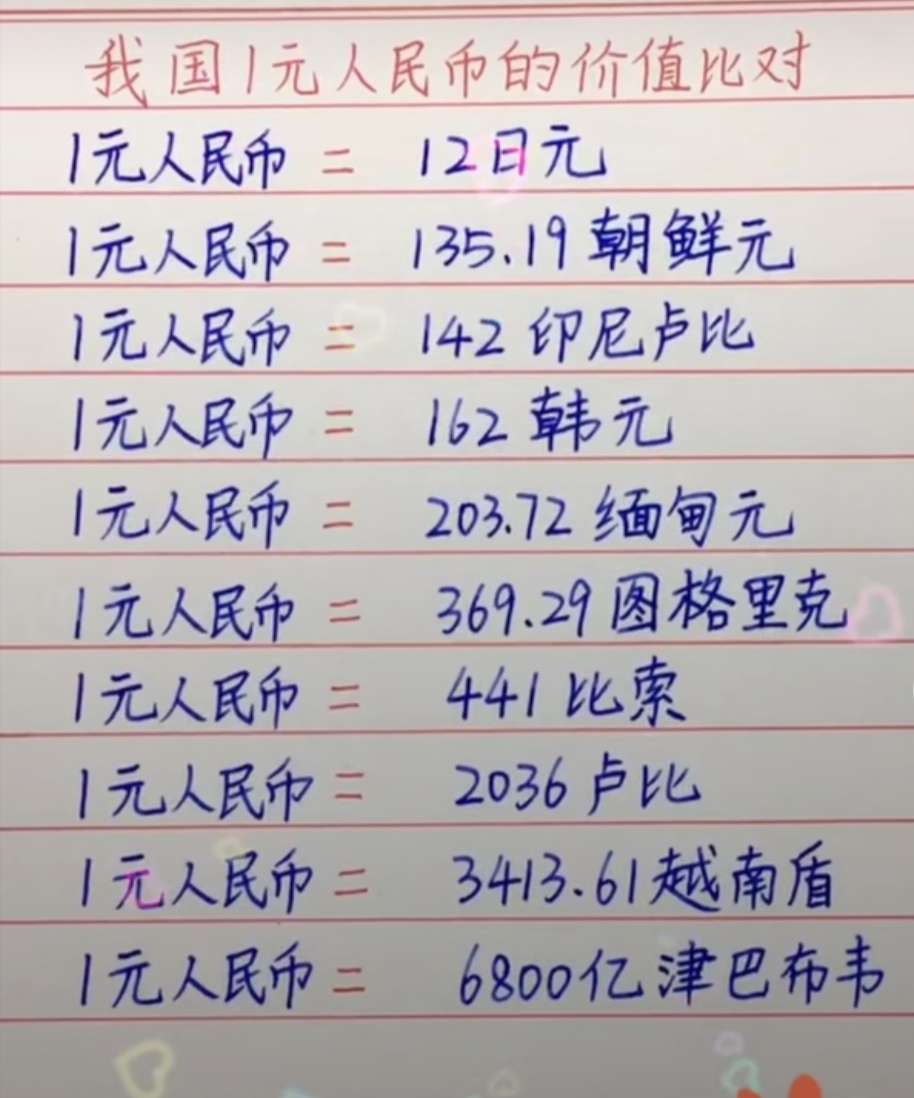 我国1元人民币的价值比对
1元人民币 = 12日元
1元人民币 = 135.19朝鲜元
1元人民币 = 142印尼卢比
1元人民币 = 162韩元
1元人民币 = 203.72缅甸元
1元人民币 = 369.29图格里克
1元人民币 = 441比索
1元人民币 = 2036卢比
1元人民币 = 3413.61越南盾
1元人民币 = 6800亿津巴布韦